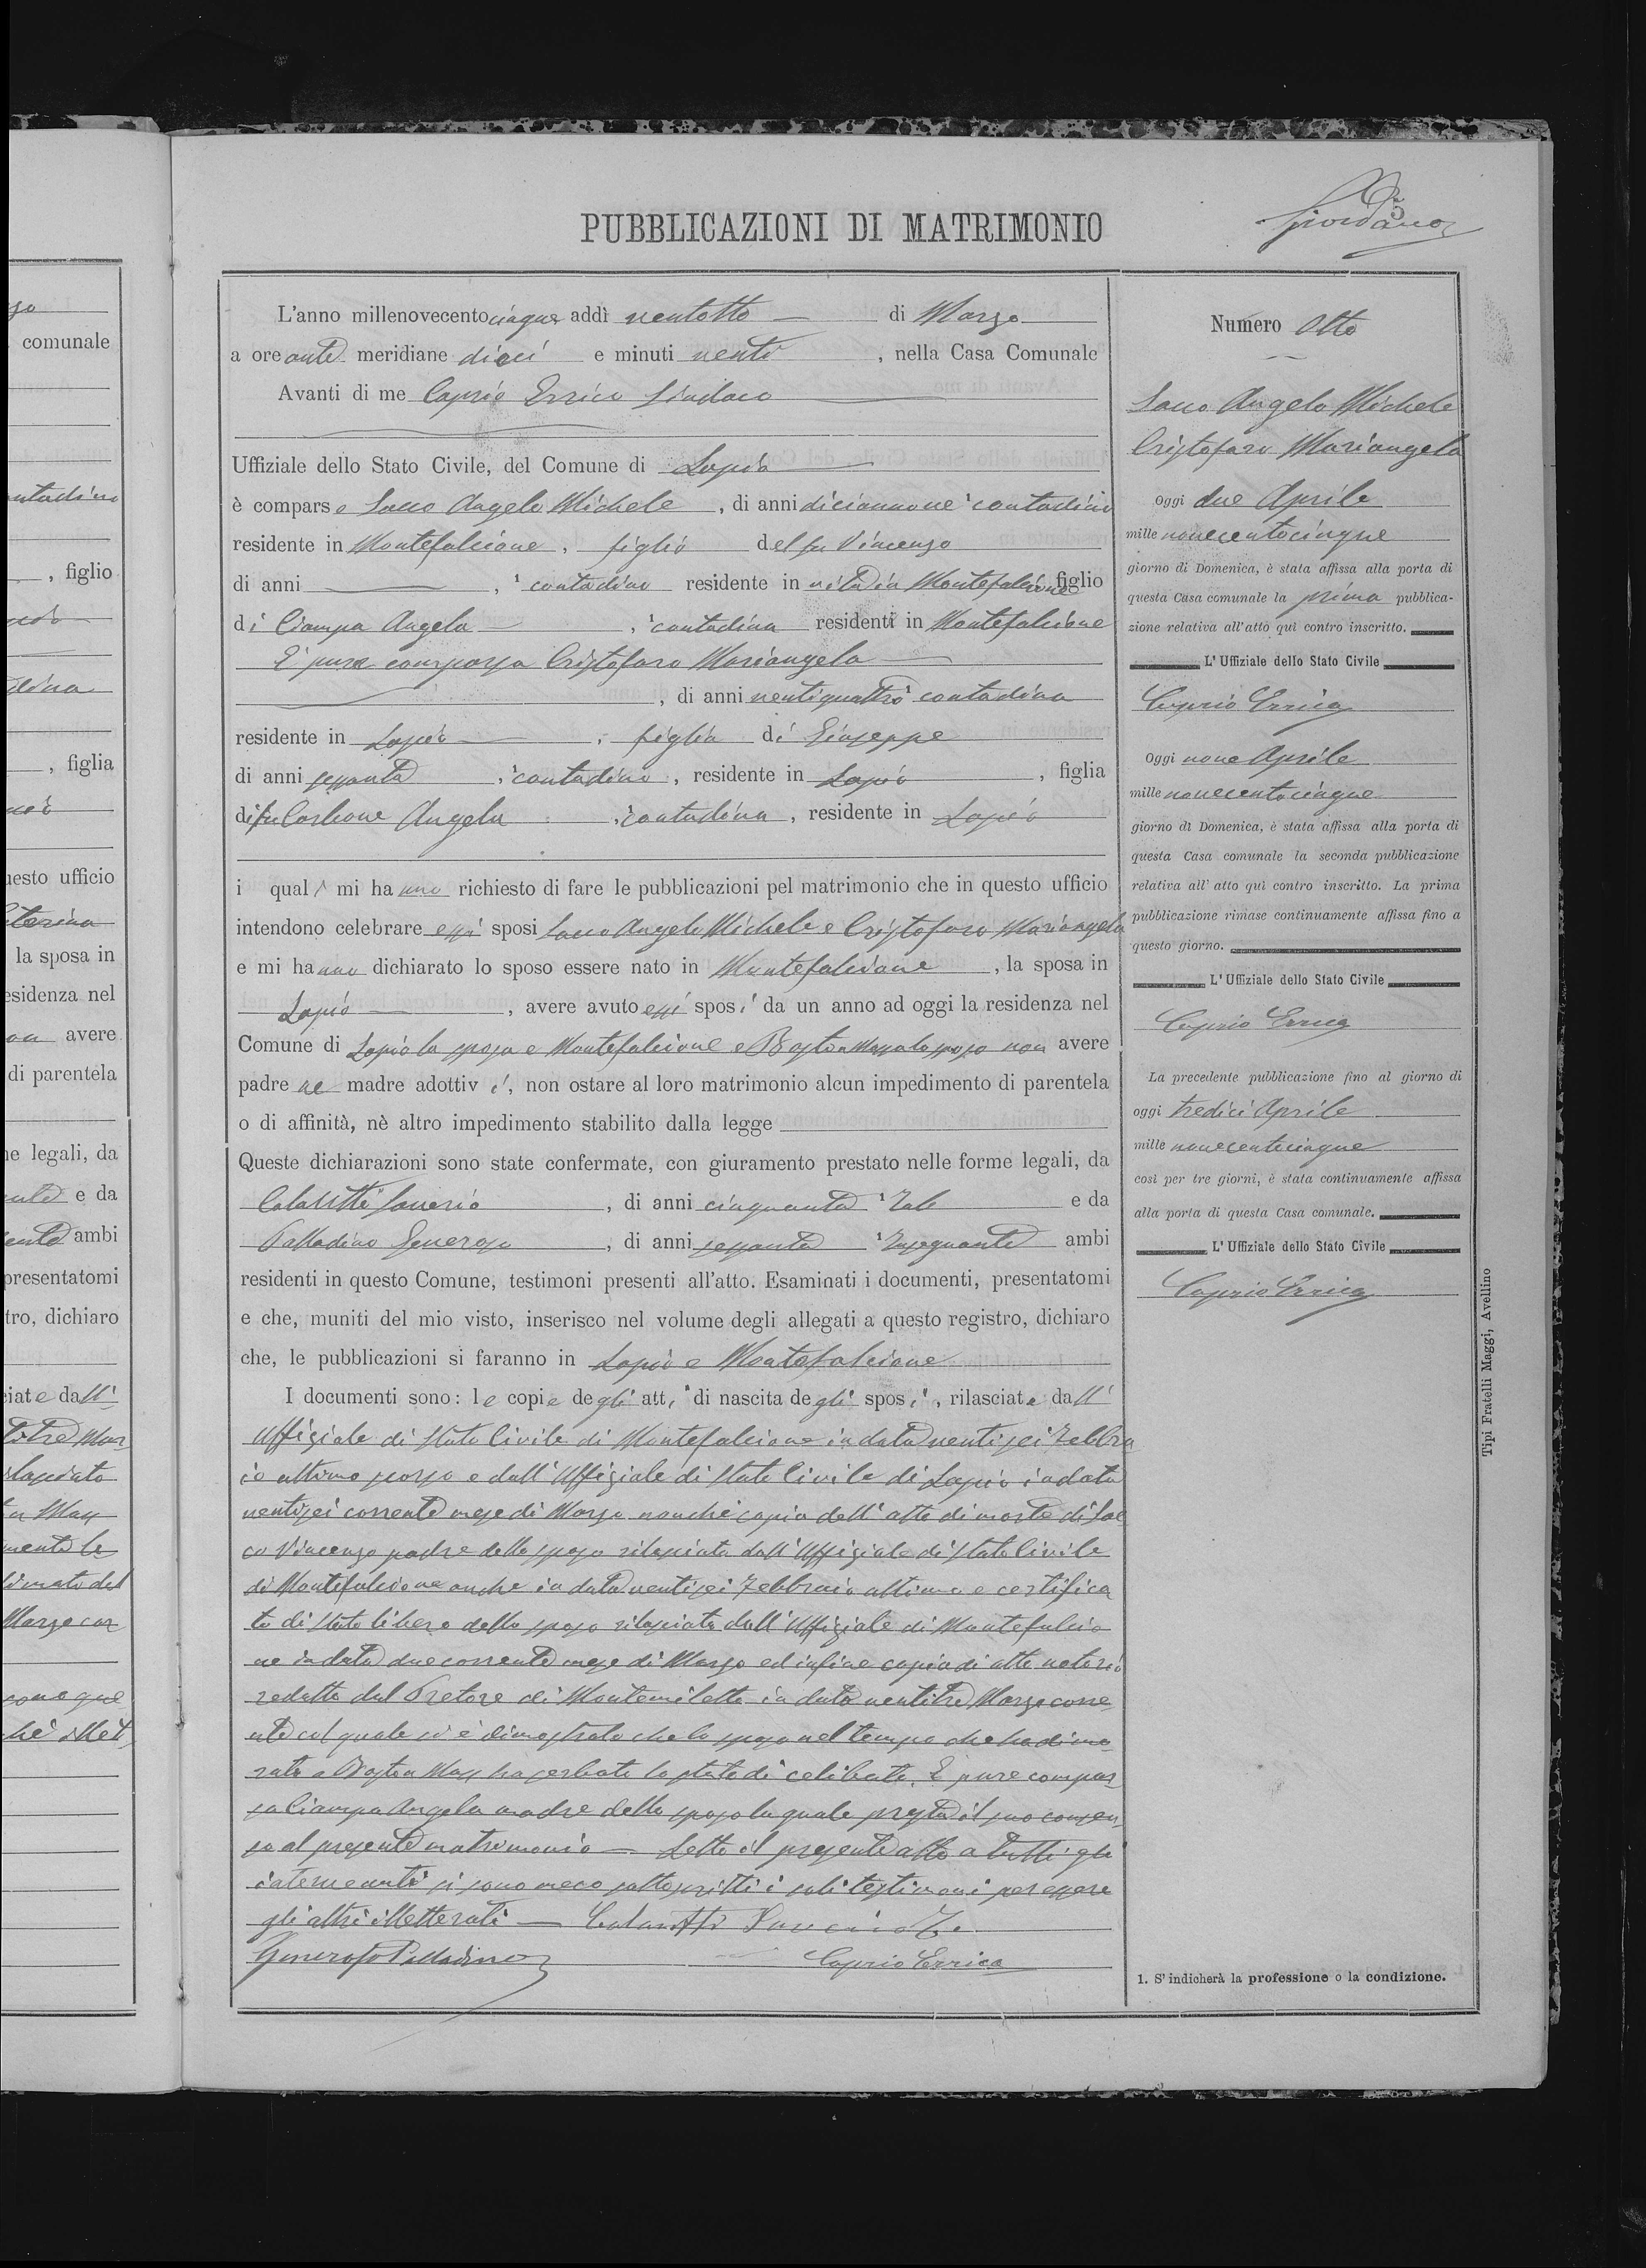 PUBBLICAZIONI DI MATRIMONIO
5
Giordano
L'anno millenovecentocinque addì ventotto di Marzo
a ore ante meridiane dieci e minuti venti, nella Casa Comunale
Avanti di me Caprio Errico Sindaco
Uffiziale dello Stato Civile, del Comune di Lapio
è comparso Sacco Angelo Michele, di anni diciannove contadino
residente in Montefalcione, figlio del fu Vincenzo
di anni , contadino residente in vita in Montefalcione figlio
di Ciampa Angela, contadina residenti in Montefalcione
E' pure comparsa Cristofaro Mariangela
, di anni ventiquattro contadina
residente in Lapio, figlia di Giuseppe
di anni sessanta, contadino, residente in Lapio, figlia
di fu Carbone Angela, contadina, residente in Lapio
i quali mi hanno richiesto di fare le pubblicazioni pel matrimonio che in questo ufficio
intendono celebrare essi sposi Sacco Angelo Michele e Cristofaro Mariangela
e mi hanno dichiarato lo sposo essere nato in Montefalcione, la sposa in
Lapio, avere avuto essi sposi da un anno ad oggi la residenza nel
Comune di Lapio la sposa e Montefalcione e Boston Mass lo sposo non avere
padre ne madre adottivi, non ostare al loro matrimonio alcun impedimento di parentela
o di affinità, nè altro impedimento stabilito dalla legge
Queste dichiarazioni sono state confermate, con giuramento prestato nelle forme legali, da
Calabritti Saverio, di anni cinquanta e da
Palladino Generoso, di anni sessanta Insegnante ambi
residenti in questo Comune, testimoni presenti all'atto. Esaminati i documenti, presentatomi
e che, muniti del mio visto, inserisco nel volume degli allegati a questo registro, dichiaro
che, le pubblicazioni si faranno in Lapio e Montefalcione
I documenti sono: le copie degli atti di nascita degli sposi, rilasciate dall'
Uffiziale di Stato Civile di Montefalcione in data ventisei Febbra
io ultimo scorso e dall'Uffiziale di Stato Civile di Lapio in data
ventisei corrente mese di Marzo nonchè copia dell'atto di morte di Sac
co Vincenzo padre dello sposo rilasciata dall'Uffiziale di Stato Civile
di Montefalcione anche in data ventisei Febbraio ultimo e certifica
to di Stato libero dello sposo rilasciato dall'Uffiziale di Montefalcio
ne in data due corrente mese di Marzo ed infine copia di atto notorio
redatto dal Pretore di Montemiletto in data ventitre Marzo corre
nte col quale si è dimostrato che lo sposo nel tempo che ha dimo
rato a Boston Mass ha serbato lo stato di celibato. E' pure compar
sa Ciampa Angela madre dello sposo la quale presta il suo consen
so al presente matrimonio — Letto il presente atto a tutti gli
intervenuti si sono meco sottoscritti i soli testimoni per essere
gli altri illetterati — Calabritti Saverio
Generoso Palladino Caprio Errico
Numero Otto
Sacco Angelo Michele
Cristofaro Mariangela
Oggi due Aprile
mille novecentocinque
giorno di Domenica, è stata affissa alla porta di
questa Casa comunale la prima pubblica-
zione relativa all'atto quì contro inscritto.
L'Uffiziale dello Stato Civile
Caprio Errico
Oggi nove Aprile
mille novecentocinque
giorno di Domenica, è stata affissa alla porta di
questa Casa comunale la seconda pubblicazione
relativa all'atto quì contro inscritto. La prima
pubblicazione rimase continuamente affissa fino a
questo giorno.
L'Uffiziale dello Stato Civile
Caprio Errico
La precedente pubblicazione fino al giorno di
oggi tredici Aprile
mille novecentocinque
così per tre giorni, è stata continuamente affissa
alla porta di questa Casa comunale.
L'Uffiziale dello Stato Civile
Caprio Errico
1. S'indicherà la professione o la condizione.
Tipi Fratelli Maggi, Avellino